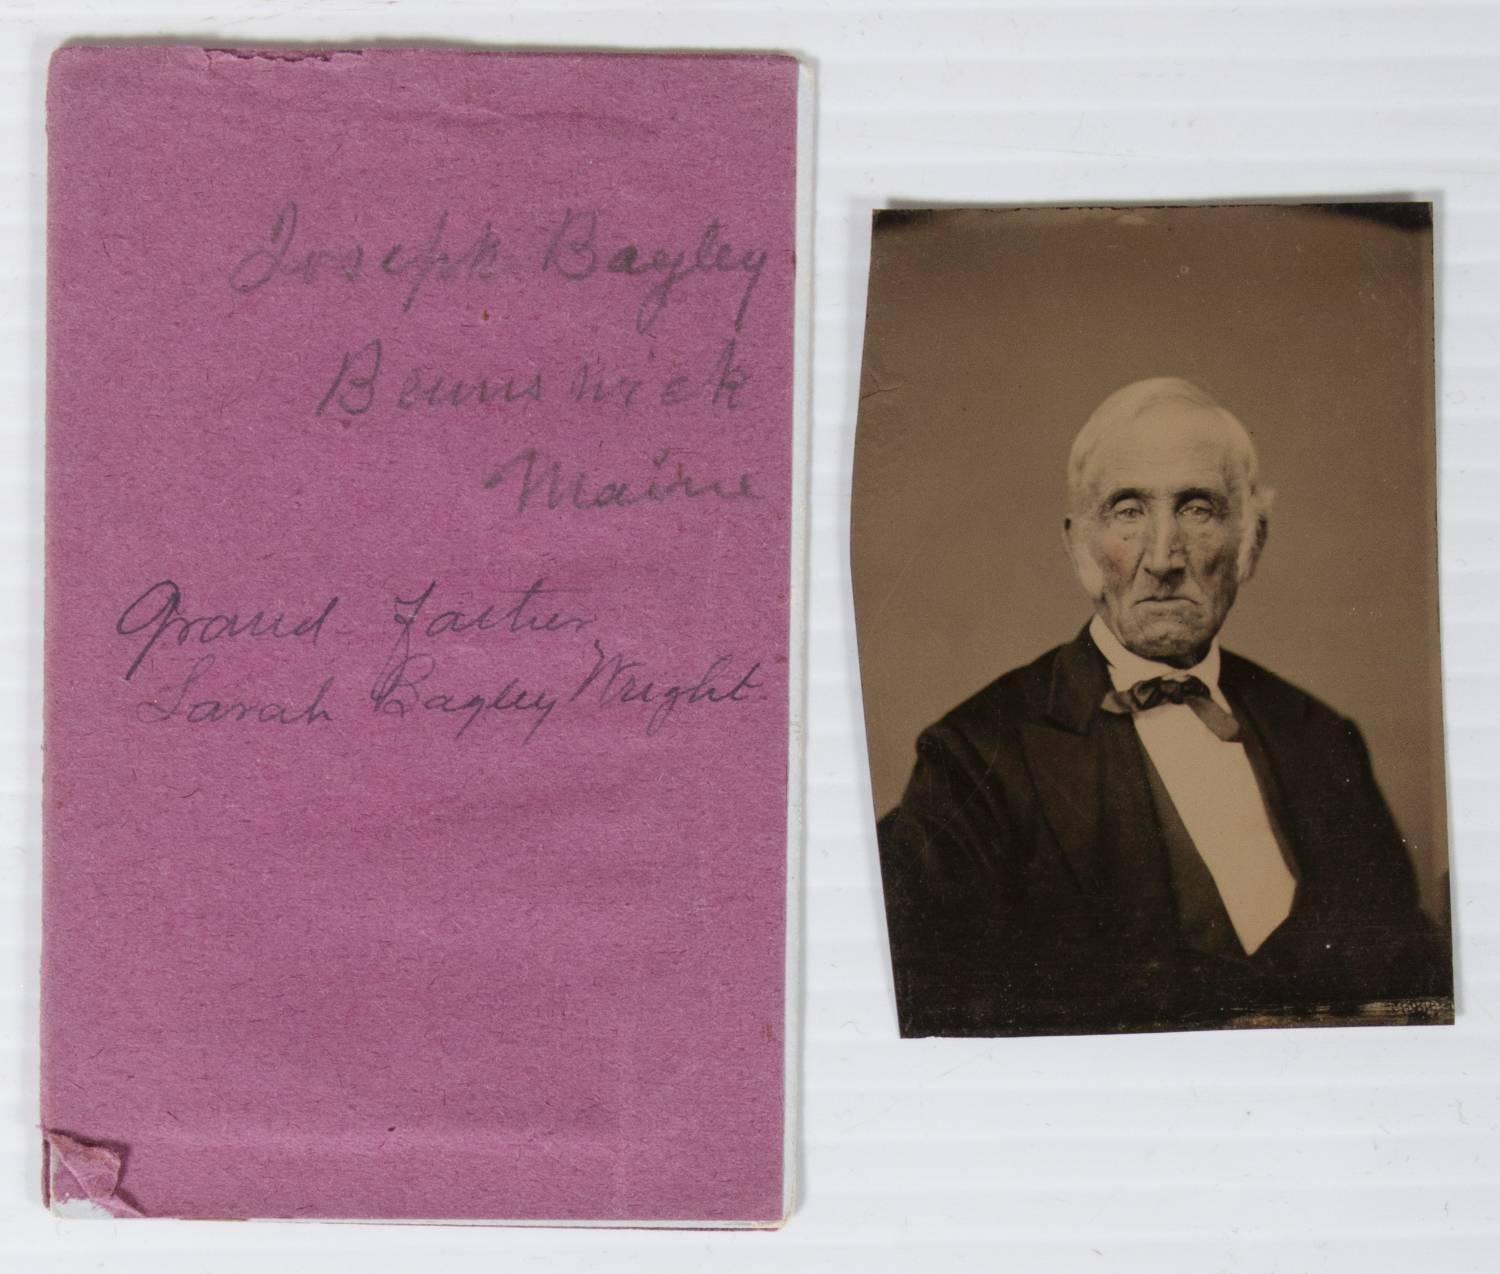 Joseph Bagley
Brunswick
Maine
Grand Father
Sarah Bagley Wright.